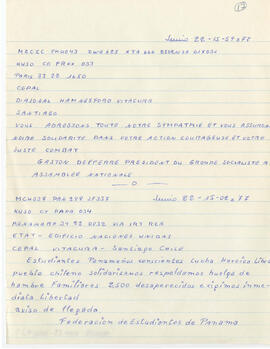 17
Junio 22-15-57 x 77
KUSO CO FRXX 053
PARIS 33 22 1650
CEPAL
DIAGDEAL HAMMESFORD VITACURA
SANTIAGO
VOUS ADRESSONS TOUTE NOTRE SYMPATHIE ET VOUS ASSURONS
NOTRE SOLIDARITE DANS VOTRE ACTION COURAGEUSE ET VOTRE
JUSTE COMBAT
GASTON DEFFERRE PRESIDENT DU GROUPE SOCIALISTE A
ASSAMBLEE NATIONALE
— O —
Junio 22-15-02 x 77
KUSO CY PAPA 034
VIA ITT RCA
ETAT - EDIFICIO NACIONES UNIDAS
CEPAL VITACURA - Santiago Chile
Estudiantes Panameños conscientes Lucha Heroica Libra
pueblo chileno solidarizamos respaldamos huelga de
hambre Familiares 2.500 desaparecidos exigimos inme-
diata Libertad
aviso de llegada.
Federacion de Estudiantes de Panama